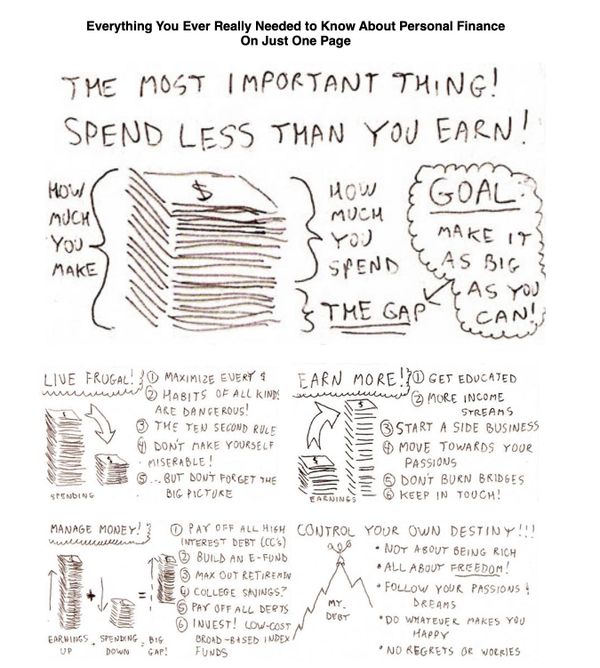 Everything You Ever Really Needed to Know About Personal Finance
On Just One Page
THE MOST IMPORTANT THING!
SPEND LESS THAN YOU EARN!
HOW
MUCH
YOU
MAKE
$
HOW
MUCH
YOU
SPEND
THE GAP
GOAL:
MAKE IT
AS BIG
AS YOU
CAN!
LIVE FRUGAL!
① MAXIMIZE EVERY $
② HABITS OF ALL KIND
ARE DANGEROUS!
③ THE TEN SECOND RULE
④ DON'T MAKE YOURSELF
MISERABLE!
⑤ ...BUT DON'T FORGET THE
BIG PICTURE
SPENDING
EARN MORE!
① GET EDUCATED
② MORE INCOME
STREAMS
③ START A SIDE BUSINESS
④ MOVE TOWARDS YOUR
PASSIONS
⑤ DON'T BURN BRIDGES
⑥ KEEP IN TOUCH!
EARNINGS
MANAGE MONEY!
① PAY OFF ALL HIGH
INTEREST DEBT (CC'S)
② BUILD AN E-FUND
③ MAX OUT RETIREMEN
④ COLLEGE SAVINGS?
⑤ PAY OFF ALL DEBTS
⑥ INVEST! LOW-COST
BROAD-BASED INDEX
FUNDS
+ =
EARNINGS
UP
+ SPENDING
DOWN
= BIG
GAP!
CONTROL YOUR OWN DESTINY!!!
• NOT ABOUT BEING RICH
• ALL ABOUT FREEDOM!
• FOLLOW YOUR PASSIONS &
DREAMS
• DO WHATEVER MAKES YOU
HAPPY
• NO REGRETS OR WORRIES
MT.
DEBT